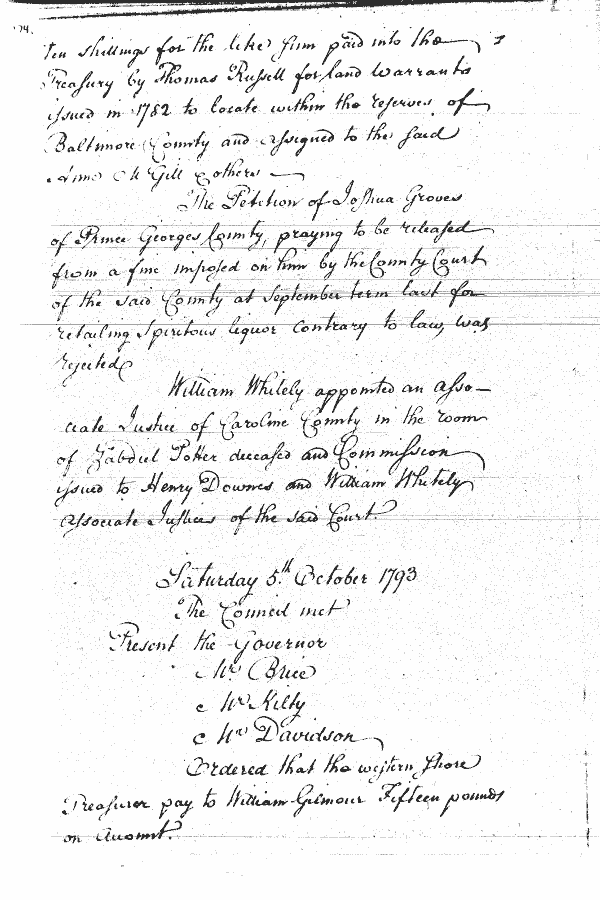 74.
ten shillings for the like sum paid into the
Treasury by Thomas Russell for land Warrants
issued in 1782 to locate within the reserves of
Baltimore County and assigned to the said
Anne McGill & others
The Petition of Joshua Groves
of Prince Georges County, praying to be released
from a fine imposed on him by the County Court
of the said County at September term last for
retailing Spiritous liquor contrary to law, was
rejected
William Whitely appointed an asso-
ciate Justice of Caroline County in the room
of Zabdiel Potter deceased and Commission
issued to Henry Downes and William Whitely
associate Justices of the said Court.
Saturday 5th October 1793
The Council met
Present the Governor
Mr Brice
Mr Kilty
Mr Davidson
Ordered that the western Shore
Treasurer pay to William Gilmour Fifteen pounds
on Account.